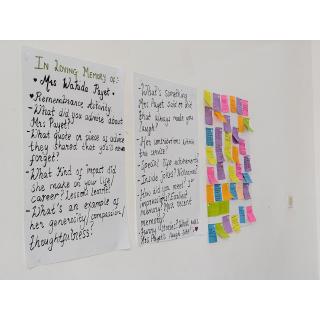 In Loving Memory of:
♥ Mrs Wahida Payet ♥
♥ Remembrance Activity
- What did you admire about
Mrs Payet?
- What quote or piece of advice
they shared that you'll never
forget?
- What kind of impact did
she make on your life/
career? Lessons learnt?
- What's an example of
her generosity/compassion/
thoughtfulness?
- What's something
Mrs Payet said or did
that always made you
laugh?
- Her contributions within
the service?
- Special life achievements
- Inside jokes? Nickname?
- How did you meet? 1st
impressions? Earliest
memory? Most recent
memory?
- Funny stories? What was
Mrs Payet's laugh like?